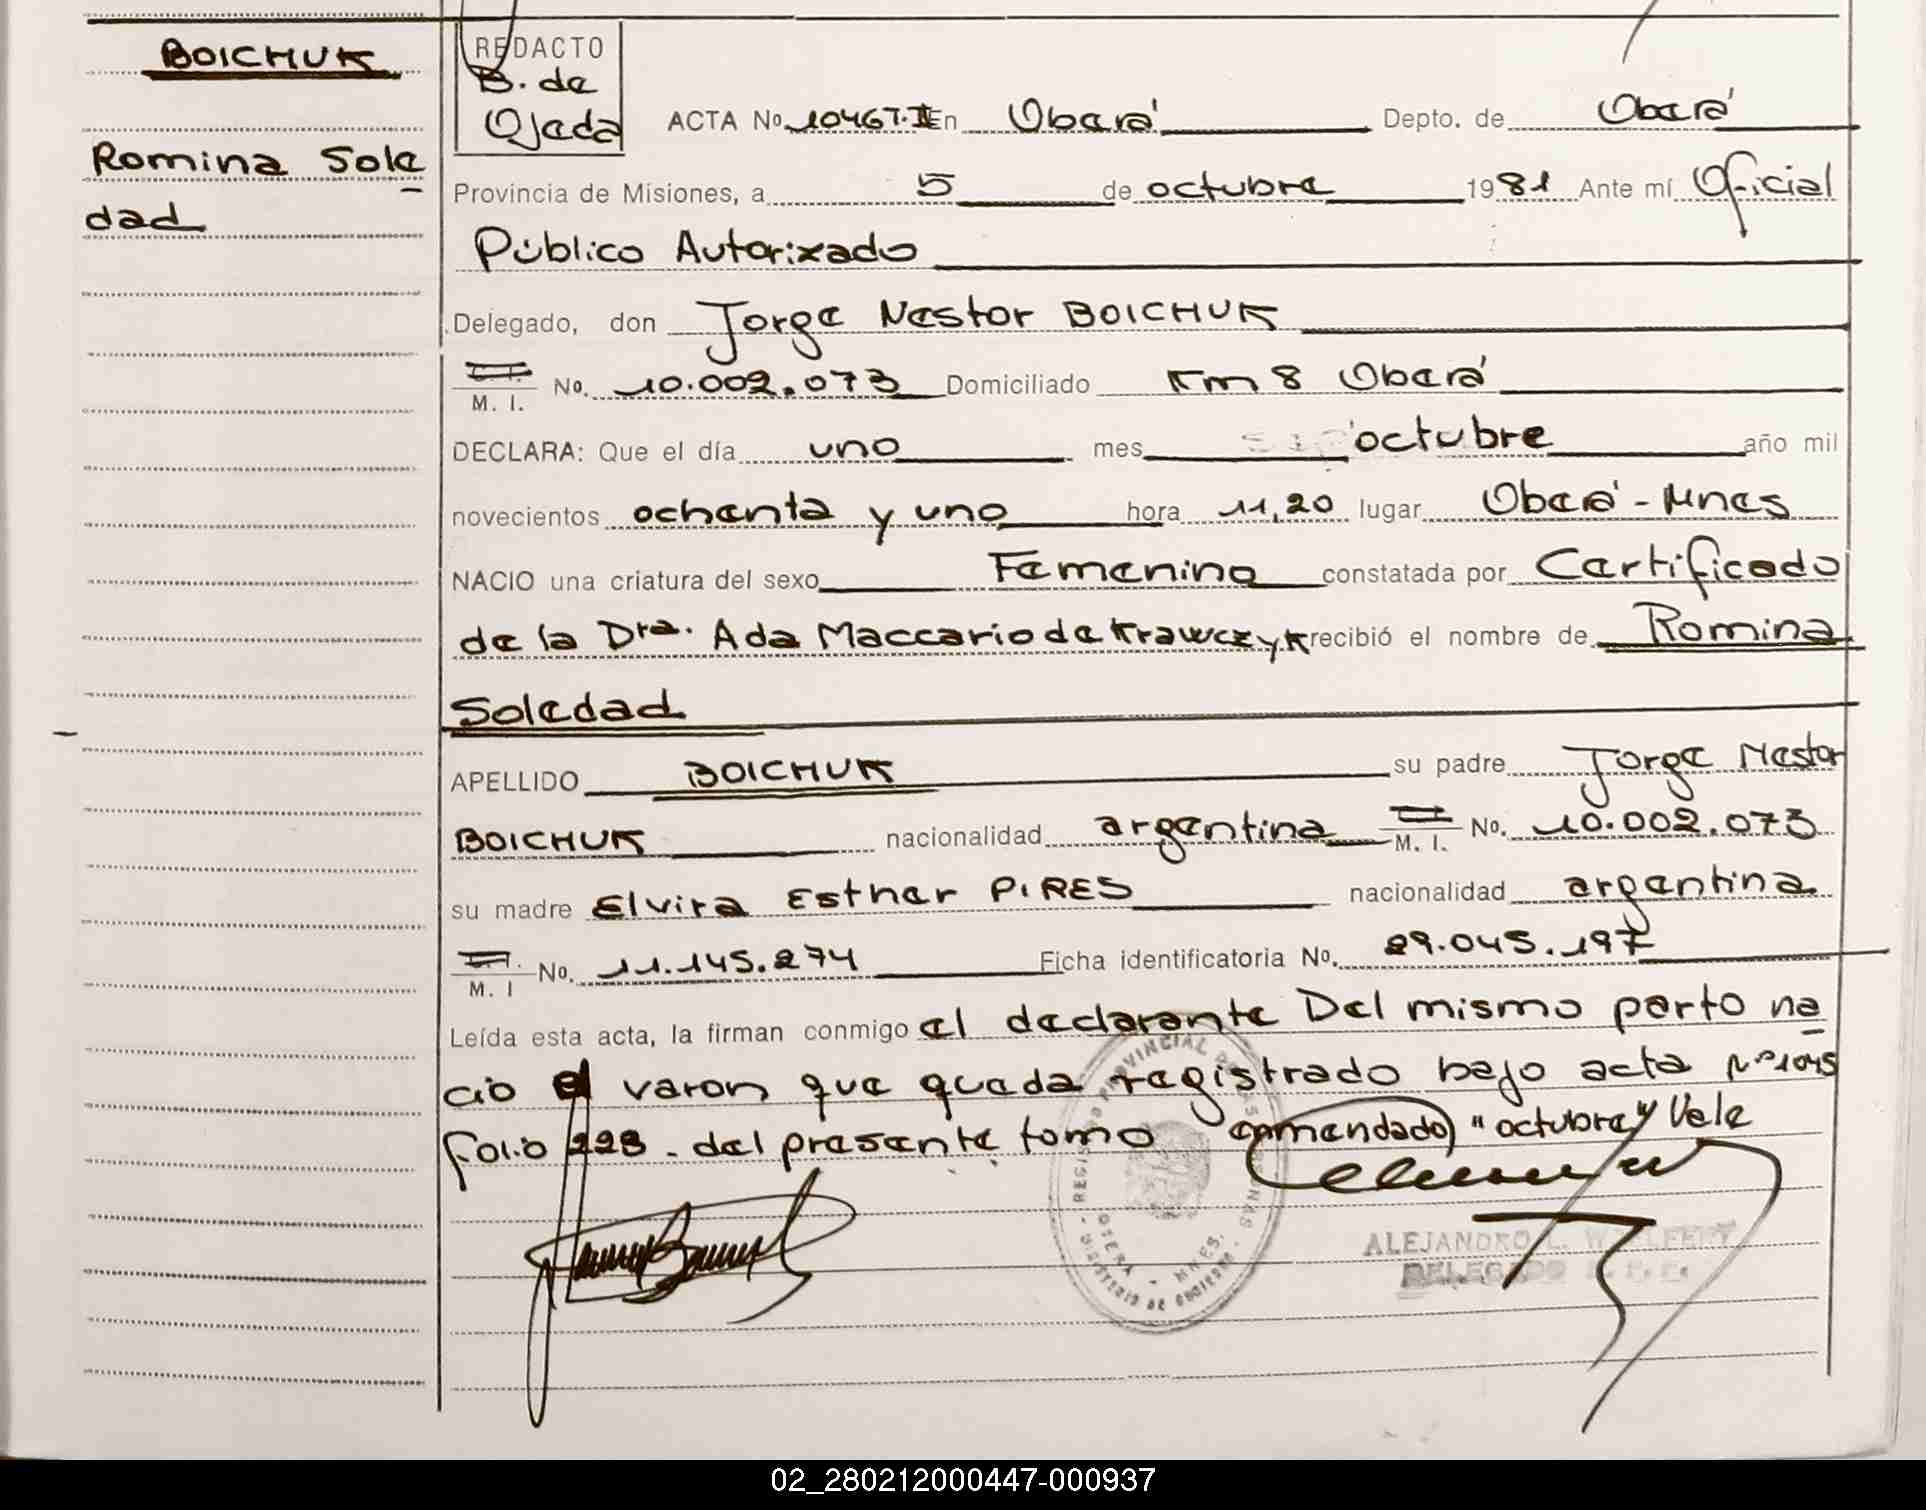 BOICHUK
Romina Sole
dad
REDACTO
B. de
Ojeda
ACTA No 1046 T. II En Oberá Depto. de Oberá
Provincia de Misiones, a 5 de octubre 1981 Ante mí Oficial
Público Autorizado
Delegado, don Jorge Nestor BOICHUK
M. I. No. 10.002.073 Domiciliado Km 8 Oberá
DECLARA: Que el día uno mes octubre año mil
novecientos ochenta y uno hora 11,20 lugar Oberá - Mnes
NACIO una criatura del sexo Femenino constatada por Certificado
de la Dra. Ada Maccario de Krawczyk recibió el nombre de Romina
Soledad
APELLIDO BOICHUK su padre Jorge Nestor
BOICHUK nacionalidad argentina M. I. No. 10.002.073
su madre Elvira Esther PIRES nacionalidad argentina
M. I No. 11.145.274 Ficha identificatoria No. 29.045.197
Leída esta acta, la firman conmigo el declarante Del mismo parto na
ció el varon que queda registrado bajo acta Nº 1045
folio 228 - del presente tomo enmendado "octubre" Vele
REGISTRO PROVINCIAL DE LAS PERSONAS
MINISTERIO DE GOBIERNO
OBERA - MNES.
ALEJANDRO L.
DELEGADO
02_280212000447-000937